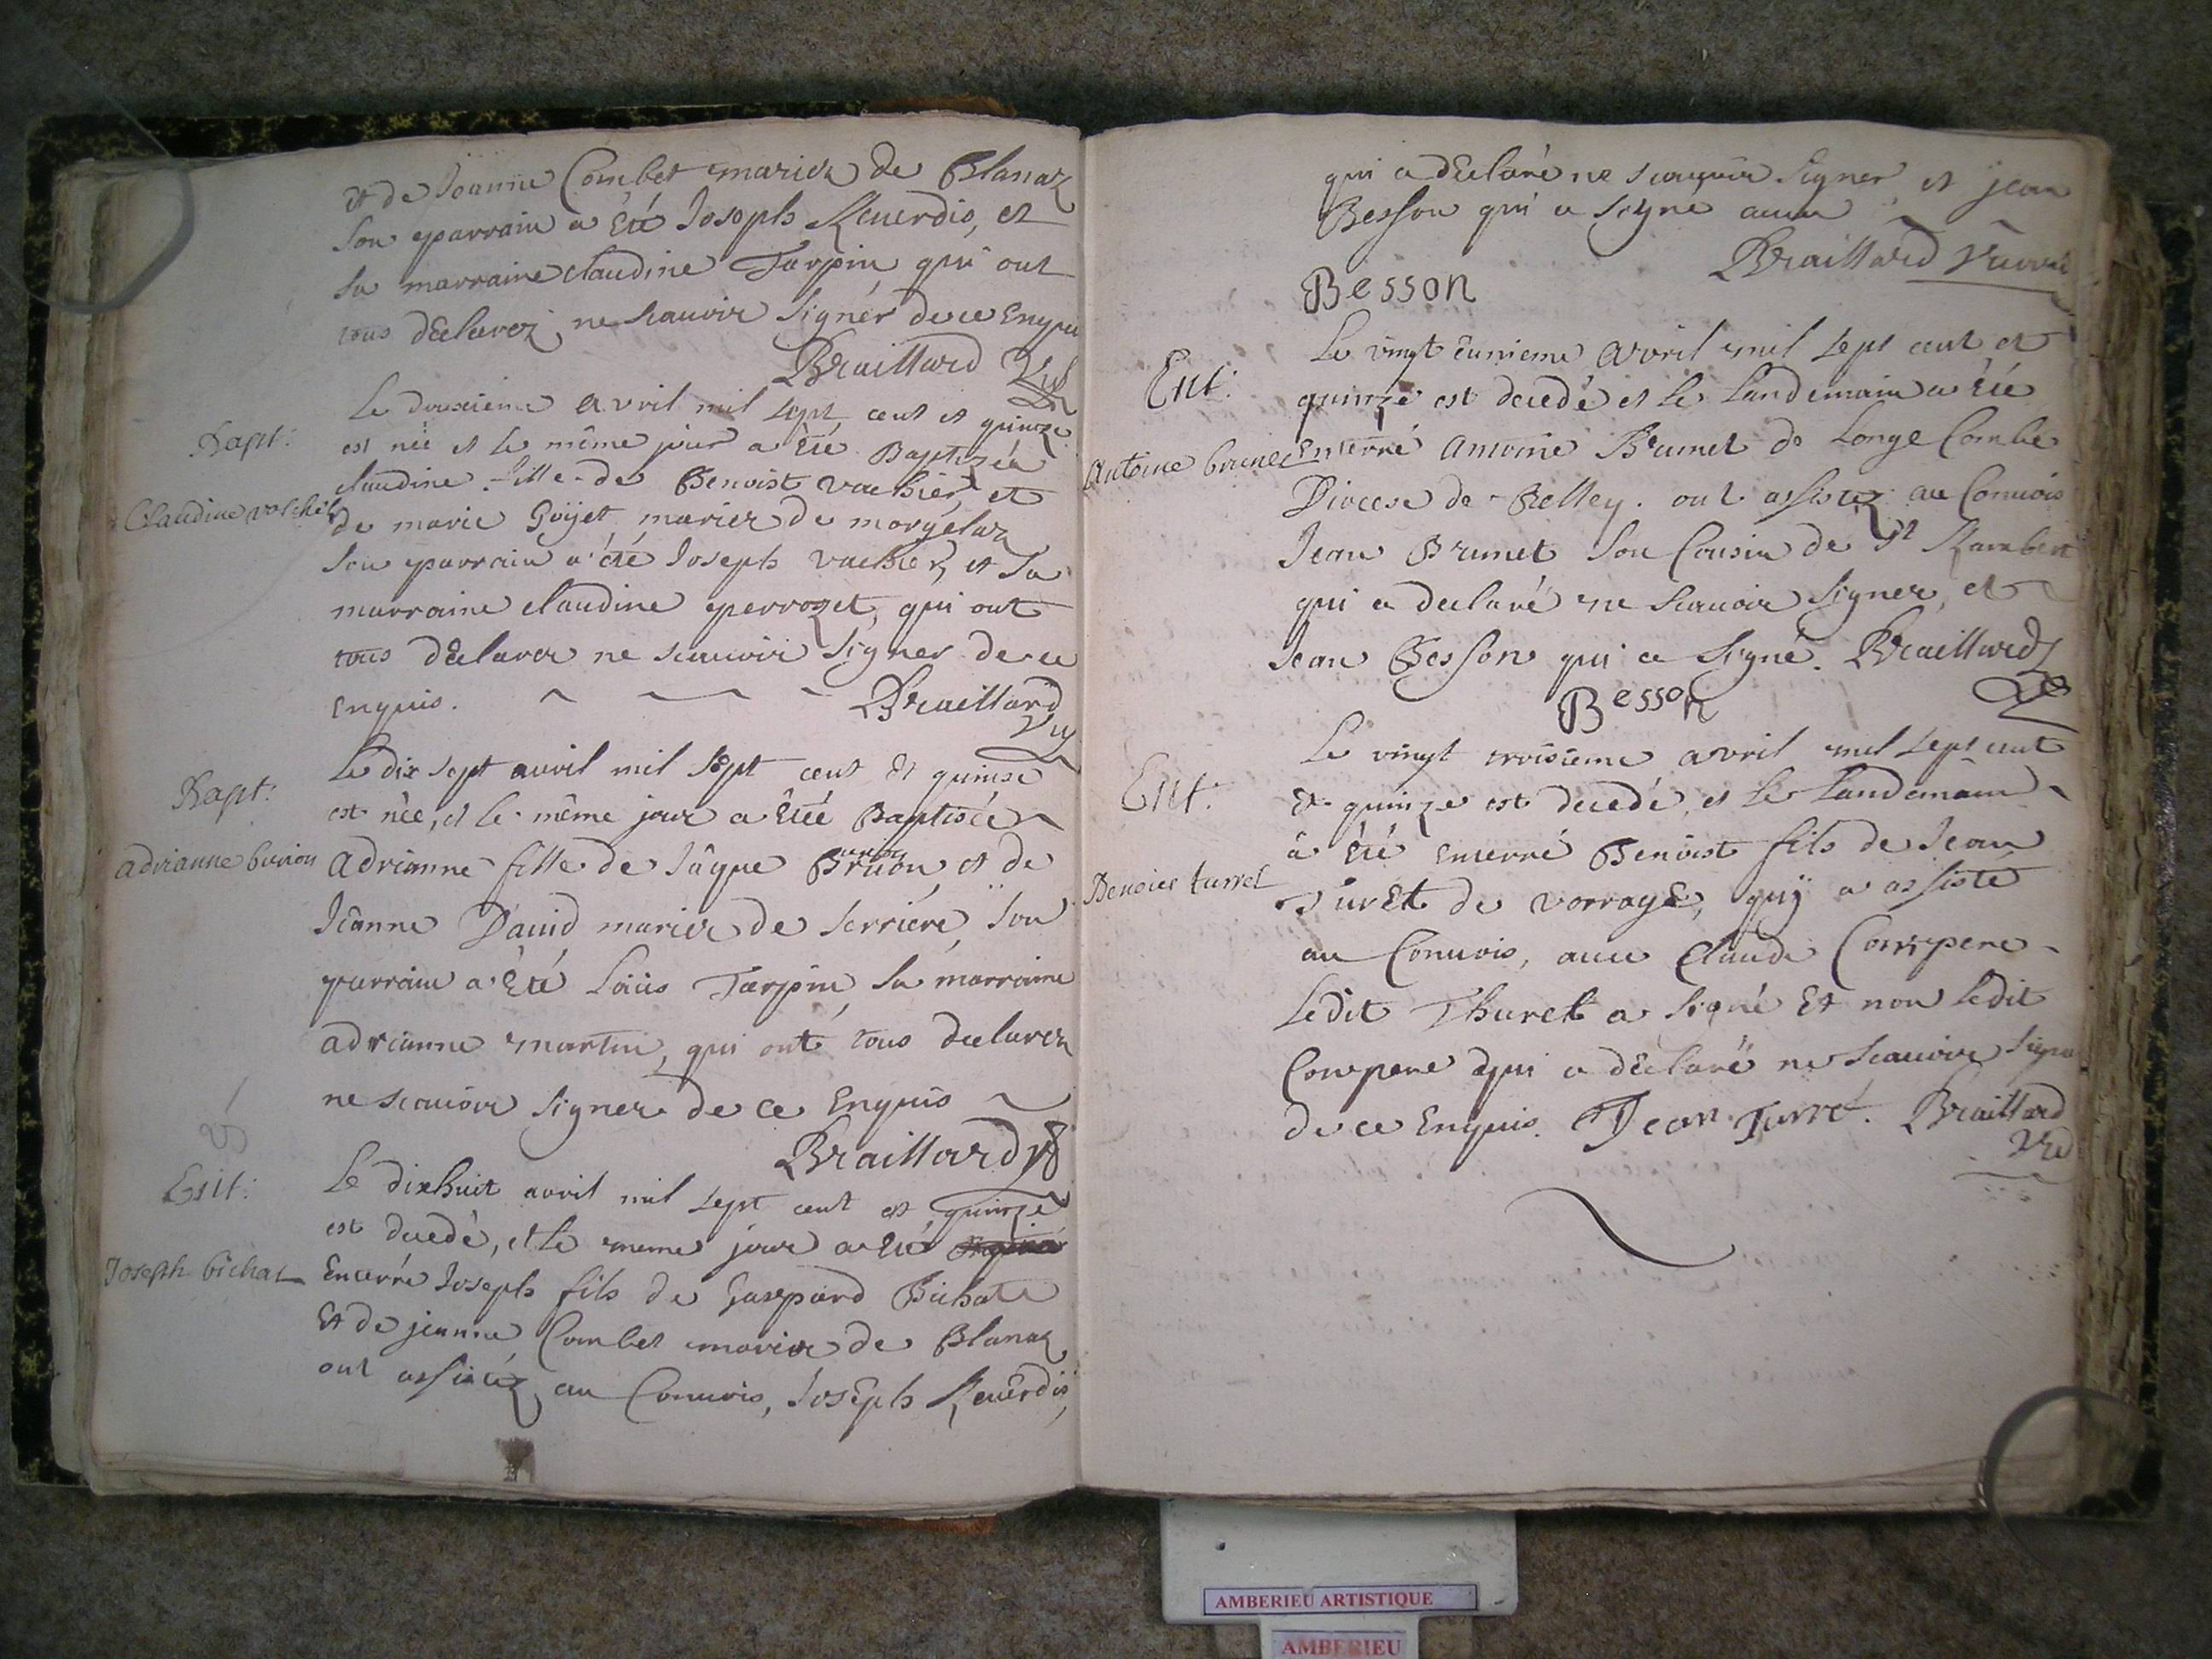 et de Jeanne Combet mariez de Blanaz
son parrain a Eté Joseph Reuerdis, et
sa marraine claudine Tarpin qui ont
tous dEclarez ne scauoir signer de ce Enquis
Braillard
Bapt:
Claudine
Le douzieme avril mil sept cent et quinze
est née et le même jour a Eté Baptizée
claudine fille de Benoist vachier, et
de marie Goyet mariez de morgelaz
son parrain a été Joseph vachier, et sa
marraine claudine perrozet, qui ont
tous dEclarez ne scauoir signer de ce
enquis. Braillard
Bapt:
adrianne burion
Le dix sept auril mil sept cent Et quinze
est née, et le même jour a Eté Baptisée
Adrianne fille de Jâque Bruon et de
Jeanne Dauid mariez de serriere, son
parrain a Eté Loüis Tarpin, sa marraine
adrianne martin, qui ont tous declarez
ne scauoir signer de ce Enquis
Braillard
Ent:
Joseph bichat
Le dixhuit avril mil sept cent et quinze
est decedé, et le meme jour a Eté
Enterré Joseph fils de Gaspard Bichat
Et de jeanne Combet mariez de Blanaz
ont assistéz au Conuois, Joseph Reuerdis,
qui a dEclaré ne scauoir signer, et jean
Besson qui a signe
Braillard
Besson
Ent:
Antoine brunet
Le vingt eunieme avril mil sept cent et
quinze est decedé et le landemain a été
Enterré Antoine Brunet de Longe Combe
Diocese de Belley. ont assistez au Conuois
Jean Brunet son Cousin de St Rambert
qui a declaré ne scauoir signer, et
Jean Besson qui a signé. Braillard
Besson
Ent:
Benoict turret
Le vingt troisieme avril mil sept cent
Et quinze est decedé, et le landemain
a Eté enterré Benoist fils de Jean
turEt de vorrage, quÿ a assisté
au Conuois, auec Claude Compere
Ledit Thuret a signé Et non Ledit
Compere qui a dEclaré ne scauoir signer
de ce Enquis. Jean Turret. Braillard
AMBERIEU ARTISTIQUE
AMBERIEU